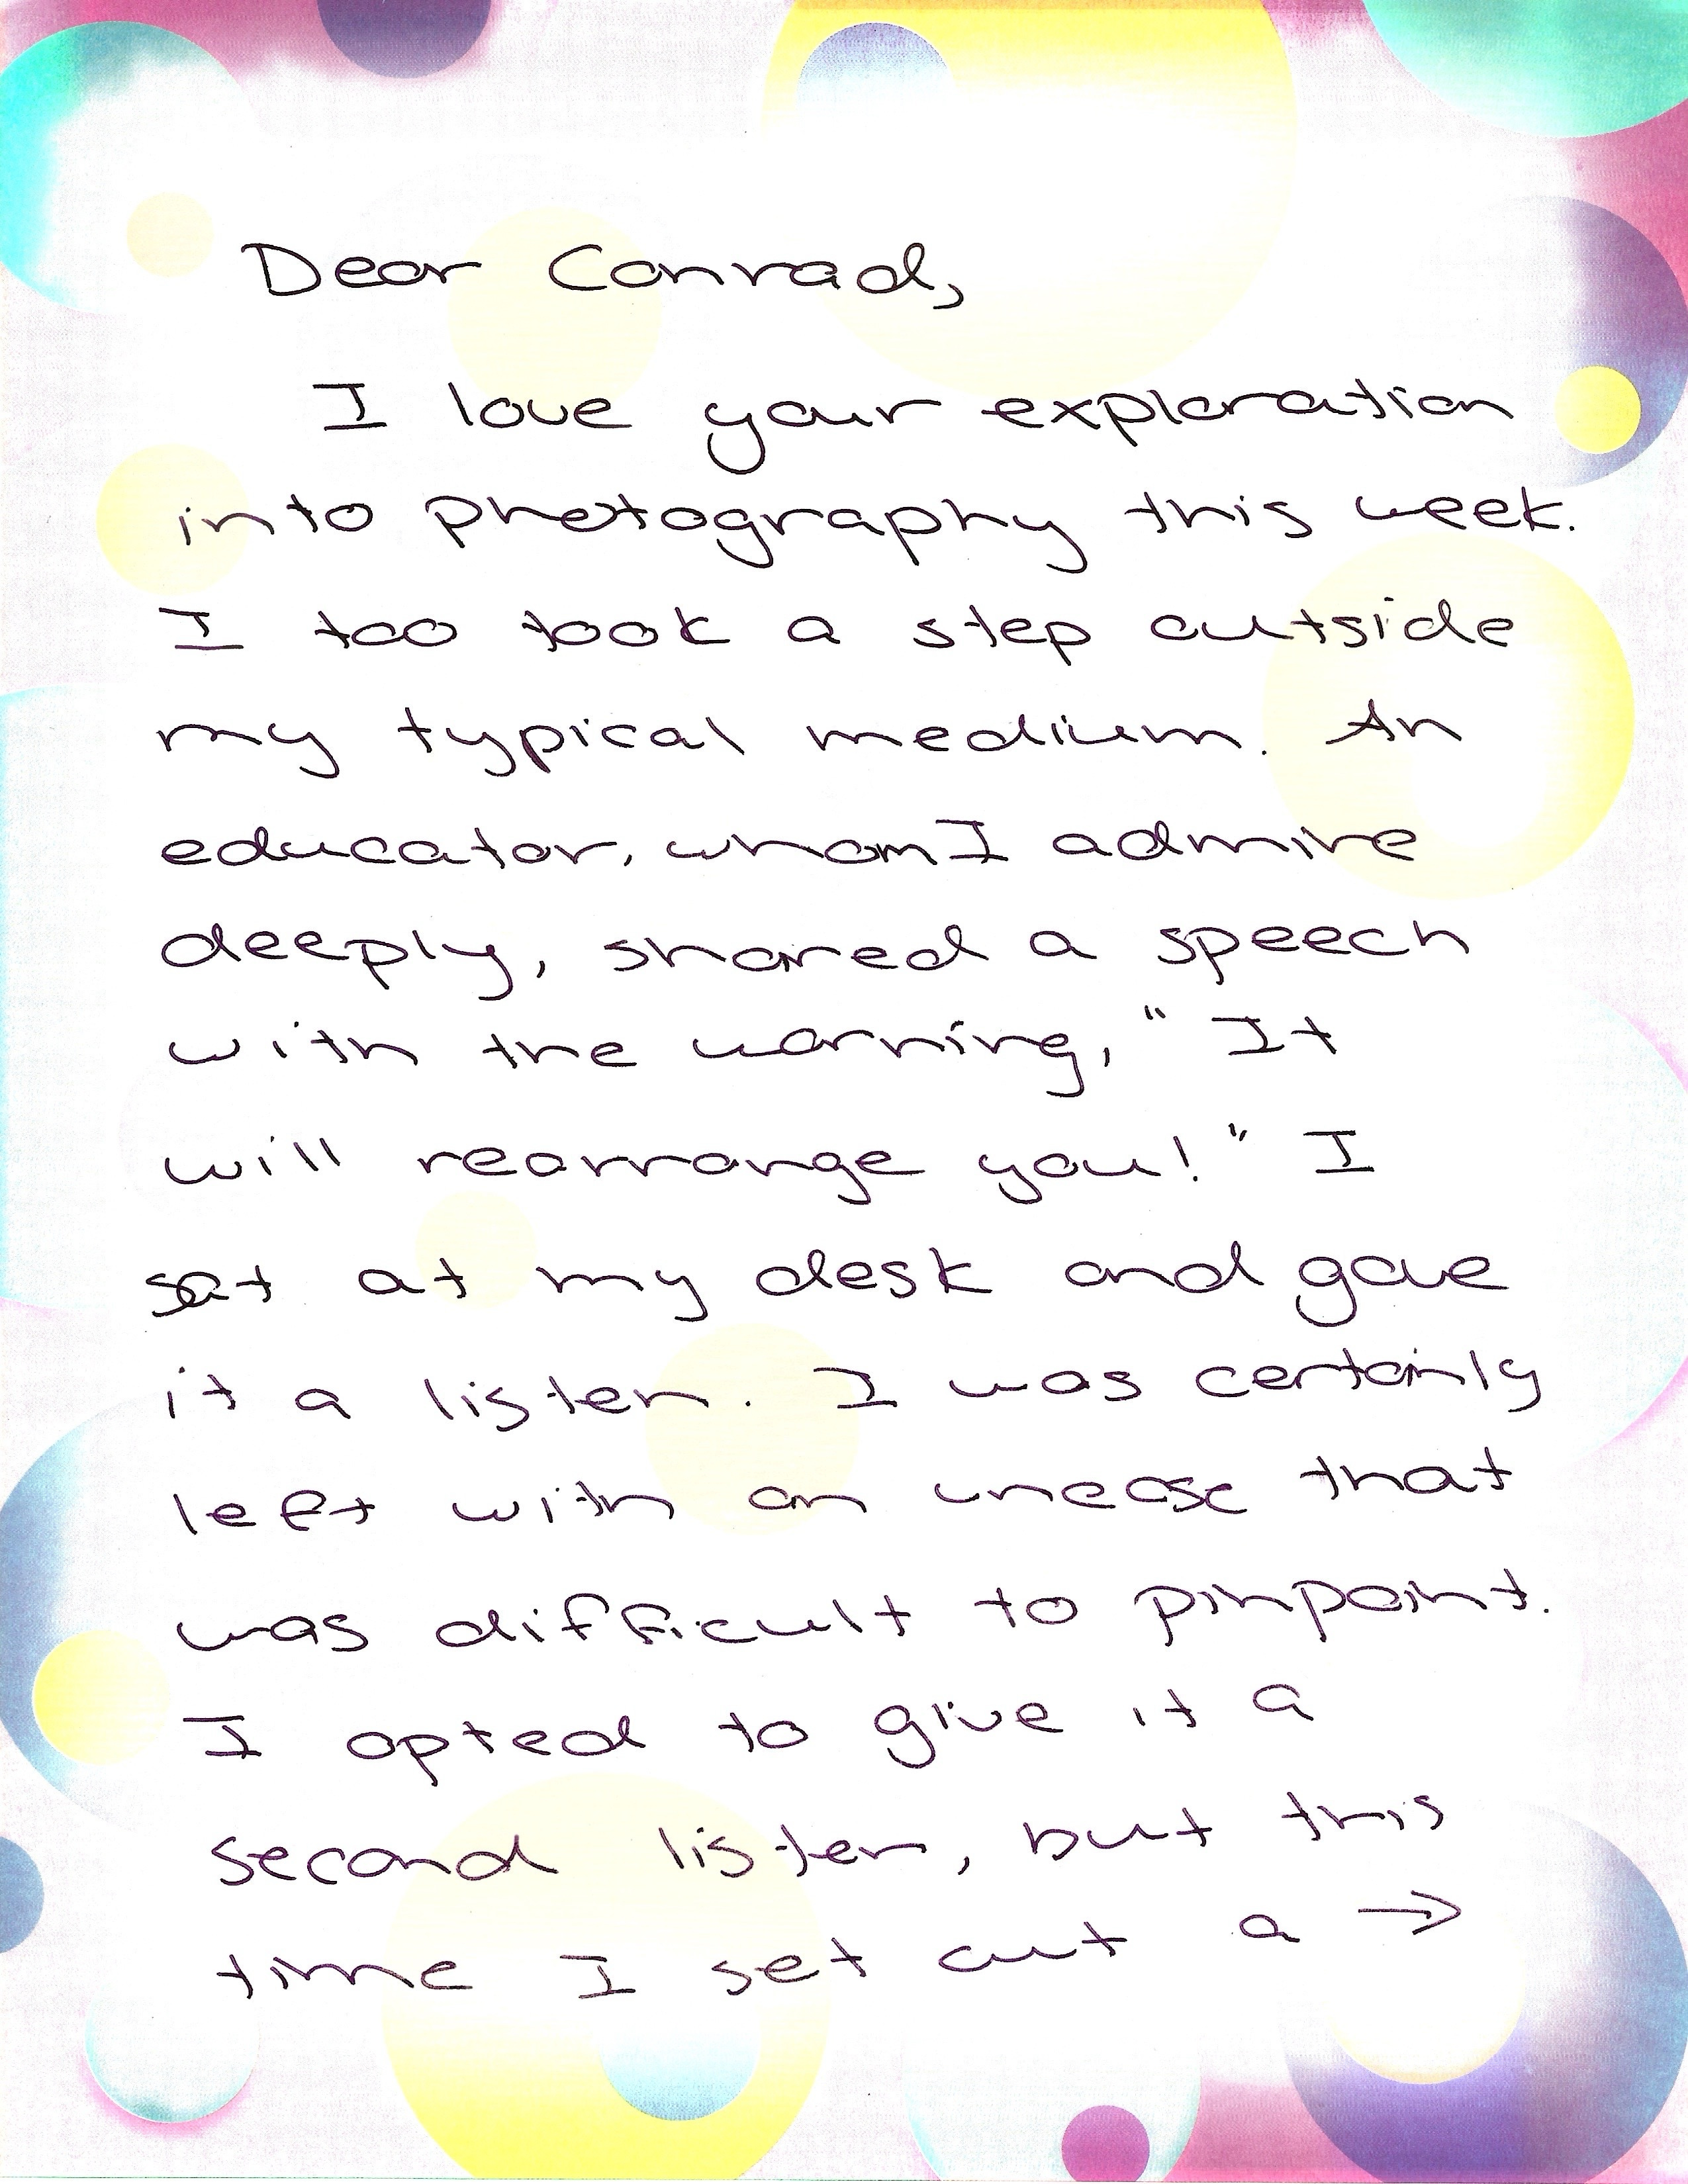 Dear Conrad,
I love your exploration
into photography this week.
I too took a step outside
my typical medium. An
educator, whom I admire
deeply, shared a speech
with the warning, "It
will rearrange you!" I
sat at my desk and gave
it a listen. I was certainly
left with an unease that
was difficult to pinpoint.
I opted to give it a
second listen, but this
time I set out a →